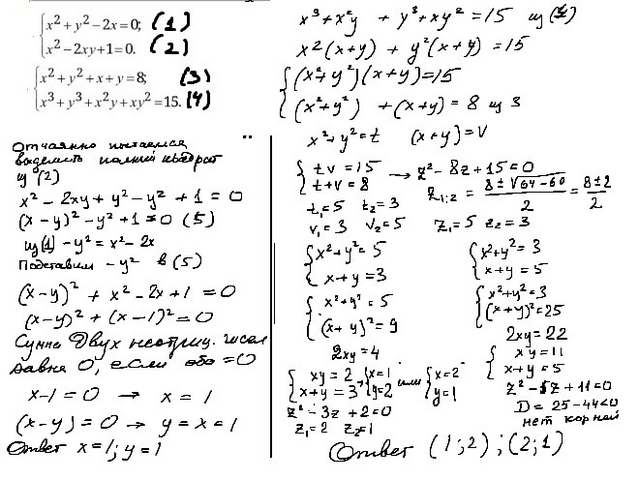 {x²+y²−2x=0; (1)
{x²−2xy+1=0. (2)
{x²+y²+x+y=8; (3)
{x³+y³+x²y+xy²=15. (4)
Отчаянно пытаемся
выделить полный квадрат
из (2)
x² − 2xy + y² − y² + 1 = 0
(x − y)² − y² + 1 = 0 (5)
из (1) − y² = x² − 2x
Подставим − y² в (5)
(x−y)² + x² − 2x + 1 = 0
(x−y)² + (x−1)² = 0
Сумма двух неотриц. чисел
равна 0, если оба = 0
x−1 = 0 → x = 1
(x−y) = 0 → y = x = 1
Ответ x = 1; y = 1
x³ + x²y + y³ + xy² = 15 из (4)
x²(x+y) + y²(x+y) = 15
{(x²+y²)(x+y) = 15
{(x²+y²) + (x+y) = 8 из 3
x²+y² = t (x+y) = v
{tv = 15 → z² − 8z + 15 = 0
{t+v = 8 z₁,₂ = (8 ± √64−60)/2 = (8±2)/2
t₁ = 5 t₂ = 3
v₁ = 3 v₂ = 5 z₁ = 5 z₂ = 3
{x²+y² = 5 {x²+y² = 3
{x+y = 3 {x+y = 5
{x²+y² = 5 {x²+y² = 3
{(x+y)² = 9 {(x+y)² = 25
2xy = 4 2xy = 22
{xy = 2 {x=1 или {x=2 {xy = 11
{x+y = 3 {y=2 {y=1 {x+y = 5
z² − 3z + 2 = 0 z² − 5z + 11 = 0
z₁ = 2 z₂ = 1 D = 25 − 44 < 0
нет корней
Ответ (1; 2) ; (2; 1)